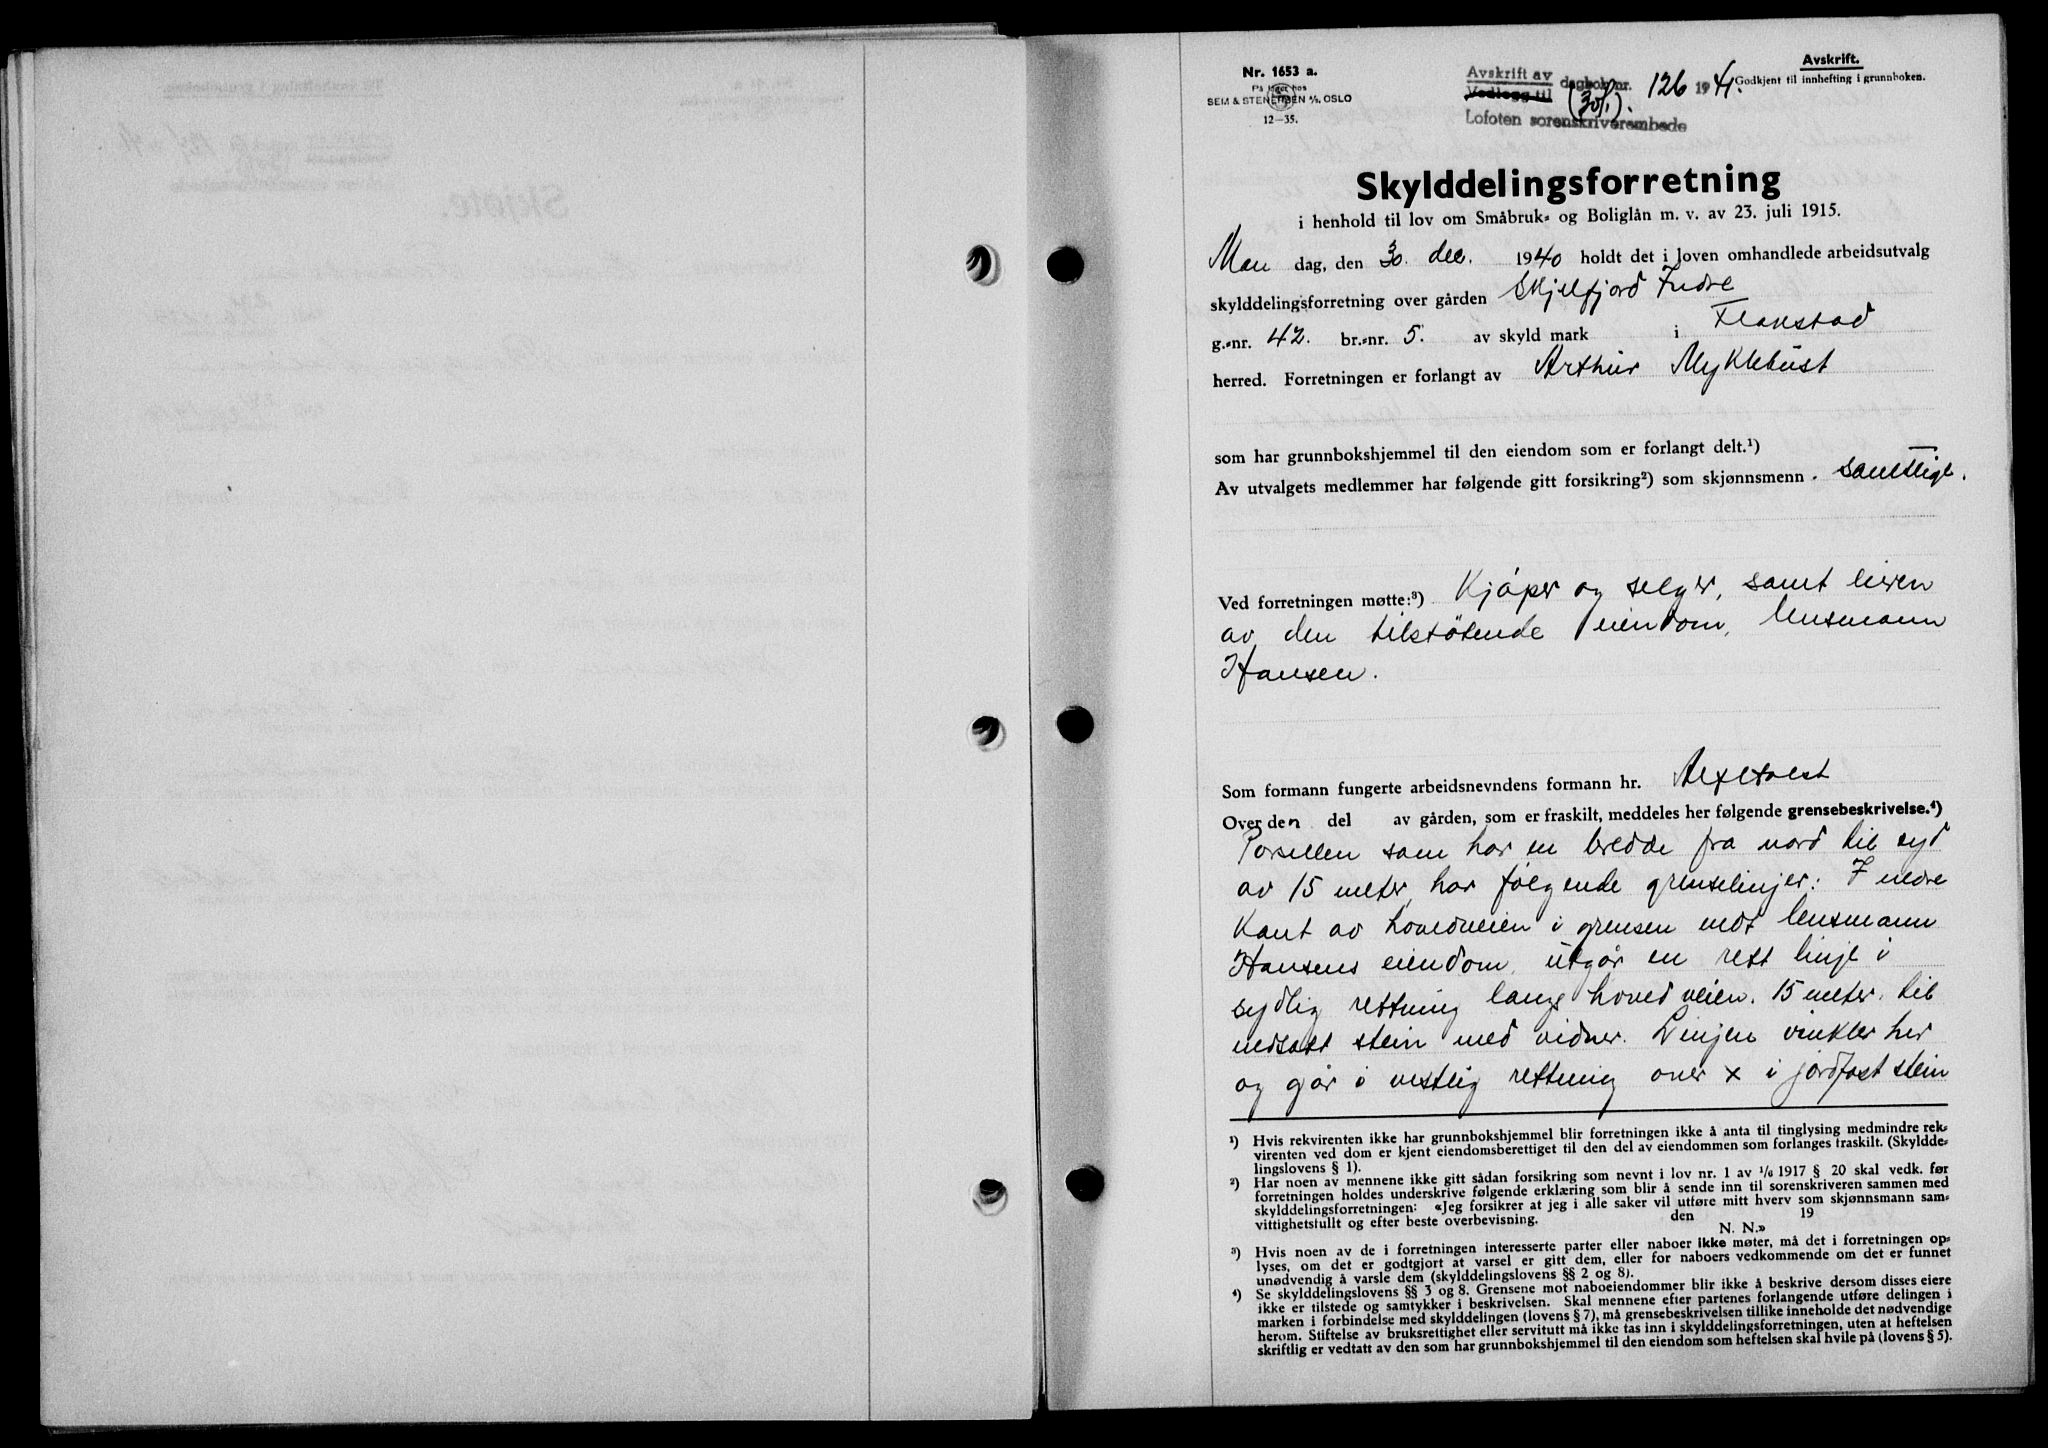 Nr. 1653 a.
På lager hos
SEM & STENERSEN A/S, OSLO
12-35.
Avskrift av
Vedlegg til
dagbok nr. 126 1941.
(30/1).
Lofoten sorenskriverembede
Avskrift.
Godkjent til innhefting i grunnboken.
Skylddelingsforretning
i henhold til lov om Småbruk- og Boliglån m. v. av 23. juli 1915.
Man dag, den 30. des. 1940 holdt det i loven omhandlede arbeidsutvalg
skylddelingsforretning over gården Skjelfjord Indre
g.-nr. 42. br.-nr. 5. av skyld mark i Flakstad
herred. Forretningen er forlangt av Arthur Myklebust
som har grunnbokshjemmel til den eiendom som er forlangt delt.¹)
Av utvalgets medlemmer har følgende gitt forsikring²) som skjønnsmenn. samtlige.
Ved forretningen møtte:³) Kjøper og selger, samt eieren
av den tilstøtende eiendom, lensmann
Hansen.
Som formann fungerte arbeidsnevndens formann hr. Alf Holst
Over den del av gården, som er fraskilt, meddeles her følgende grensebeskrivelse.⁴)
Parsellen som har en bredde fra nord til syd
av 15 meter, har følgende grenselinjer: I nedre
kant av hovedveien i grensen mot lensmann
Hansens eiendom, utgår en rett linje i
sydlig retning langs hovedveien. 15 meter, til
nedsatt stein med vidner. Linjen vinkler her
og går i vestlig retning over x i jordfast stein
¹) Hvis rekvirenten ikke har grunnbokshjemmel blir forretningen ikke å anta til tinglysing medmindre rek-
virenten ved dom er kjent eiendomsberettiget til den del av eiendommen som forlanges fraskilt. (Skyldde-
lingslovens § 1).
²) Har noen av mennene ikke gitt sådan forsikring som nevnt i lov nr. 1 av 1/6 1917 § 20 skal vedk. før
forretningen holdes underskrive følgende erklæring som blir å sende inn til sorenskriveren sammen med
skylddelingsforretningen: «Jeg forsikrer at jeg i alle saker vil utføre mitt hverv som skjønnsmann sam-
vittighetsfullt og efter beste overbevisning. den 19
N. N.»
³) Hvis noen av de i forretningen interesserte parter eller naboer ikke møter, må det i forretningen op-
lyses, om det er godtgjort at varsel er gitt dem, eller for naboers vedkommende om det er funnet
unødvendig å varsle dem (skylddelingslovens §§ 2 og 8).
⁴) Se skylddelingslovens §§ 3 og 8. Grensene mot naboeiendommer blir ikke å beskrive dersom disses eiere
ikke er tilstede og samtykker i beskrivelsen. Skal mennene efter partenes forlangende utføre delingen i
marken i forbindelse med skylddelingen (lovens § 7), må grensebeskrivelsen tillike inneholde det nødvendige
herom. Stiftelse av bruksrettighet eller servitutt må ikke tas inn i skylddelingsforretningen, uten at heftelsen
skriftlig er vedtatt av den som har grunnbokshjemmel til den eiendom som heftelsen skal hvile på (lovens § 5).